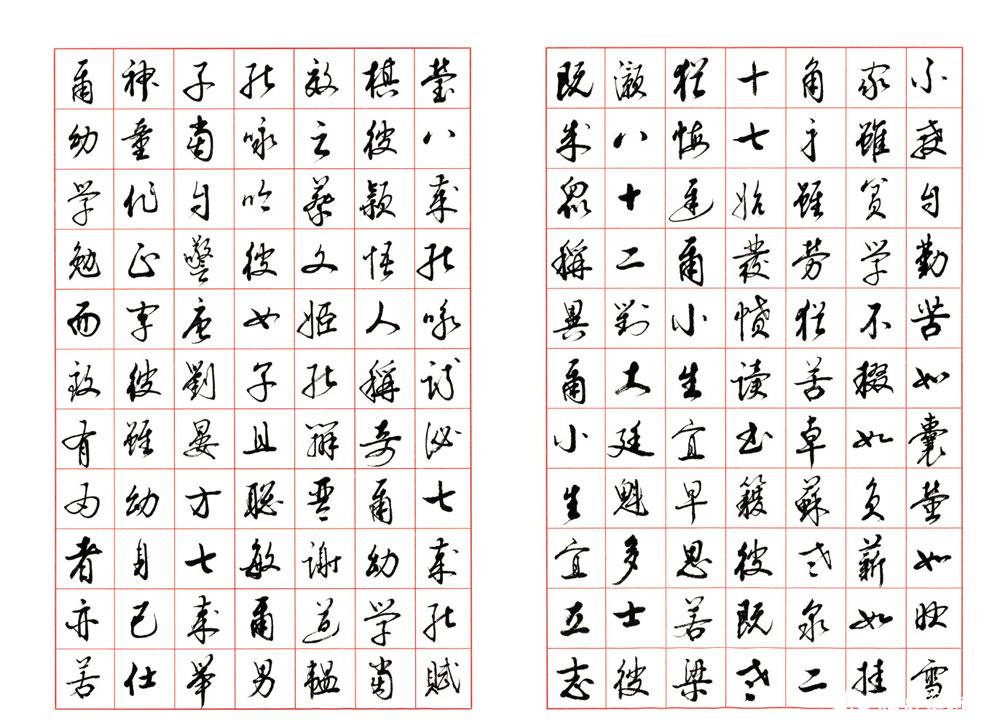 不教自勤苦如囊螢如映雪
家雖貧学不輟如負薪如挂
角身雖勞猶苦卓蘇老泉二
十七始發憤讀書籍彼既老
猶悔遲爾小生宜早思若梁
灝八十二對大廷魁多士彼
既成眾稱異爾小生宜立志
瑩八歲能咏詩泌七歲能賦
棋彼穎悟人稱奇爾幼学當
效之蔡文姬能辨琴謝道韞
能咏吟彼女子且聰敏爾男
子當自警唐劉晏方七歲舉
神童作正字彼雖幼身已仕
爾幼学勉而致有為者亦若